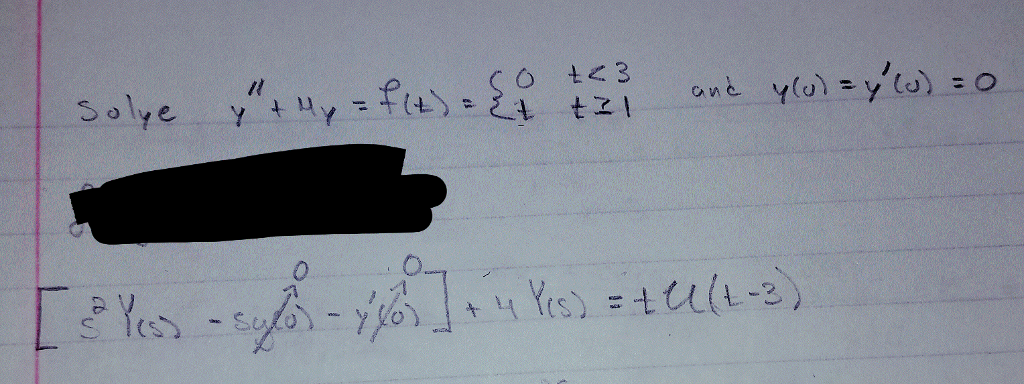 Solve y" + 4y = f(t) = { 0 t<3 and y(0) = y'(0) = 0
t t≥1
0 0
[s² Y(s) - sy(0) - y'(0)] + 4 Y(s) = t U(t-3)